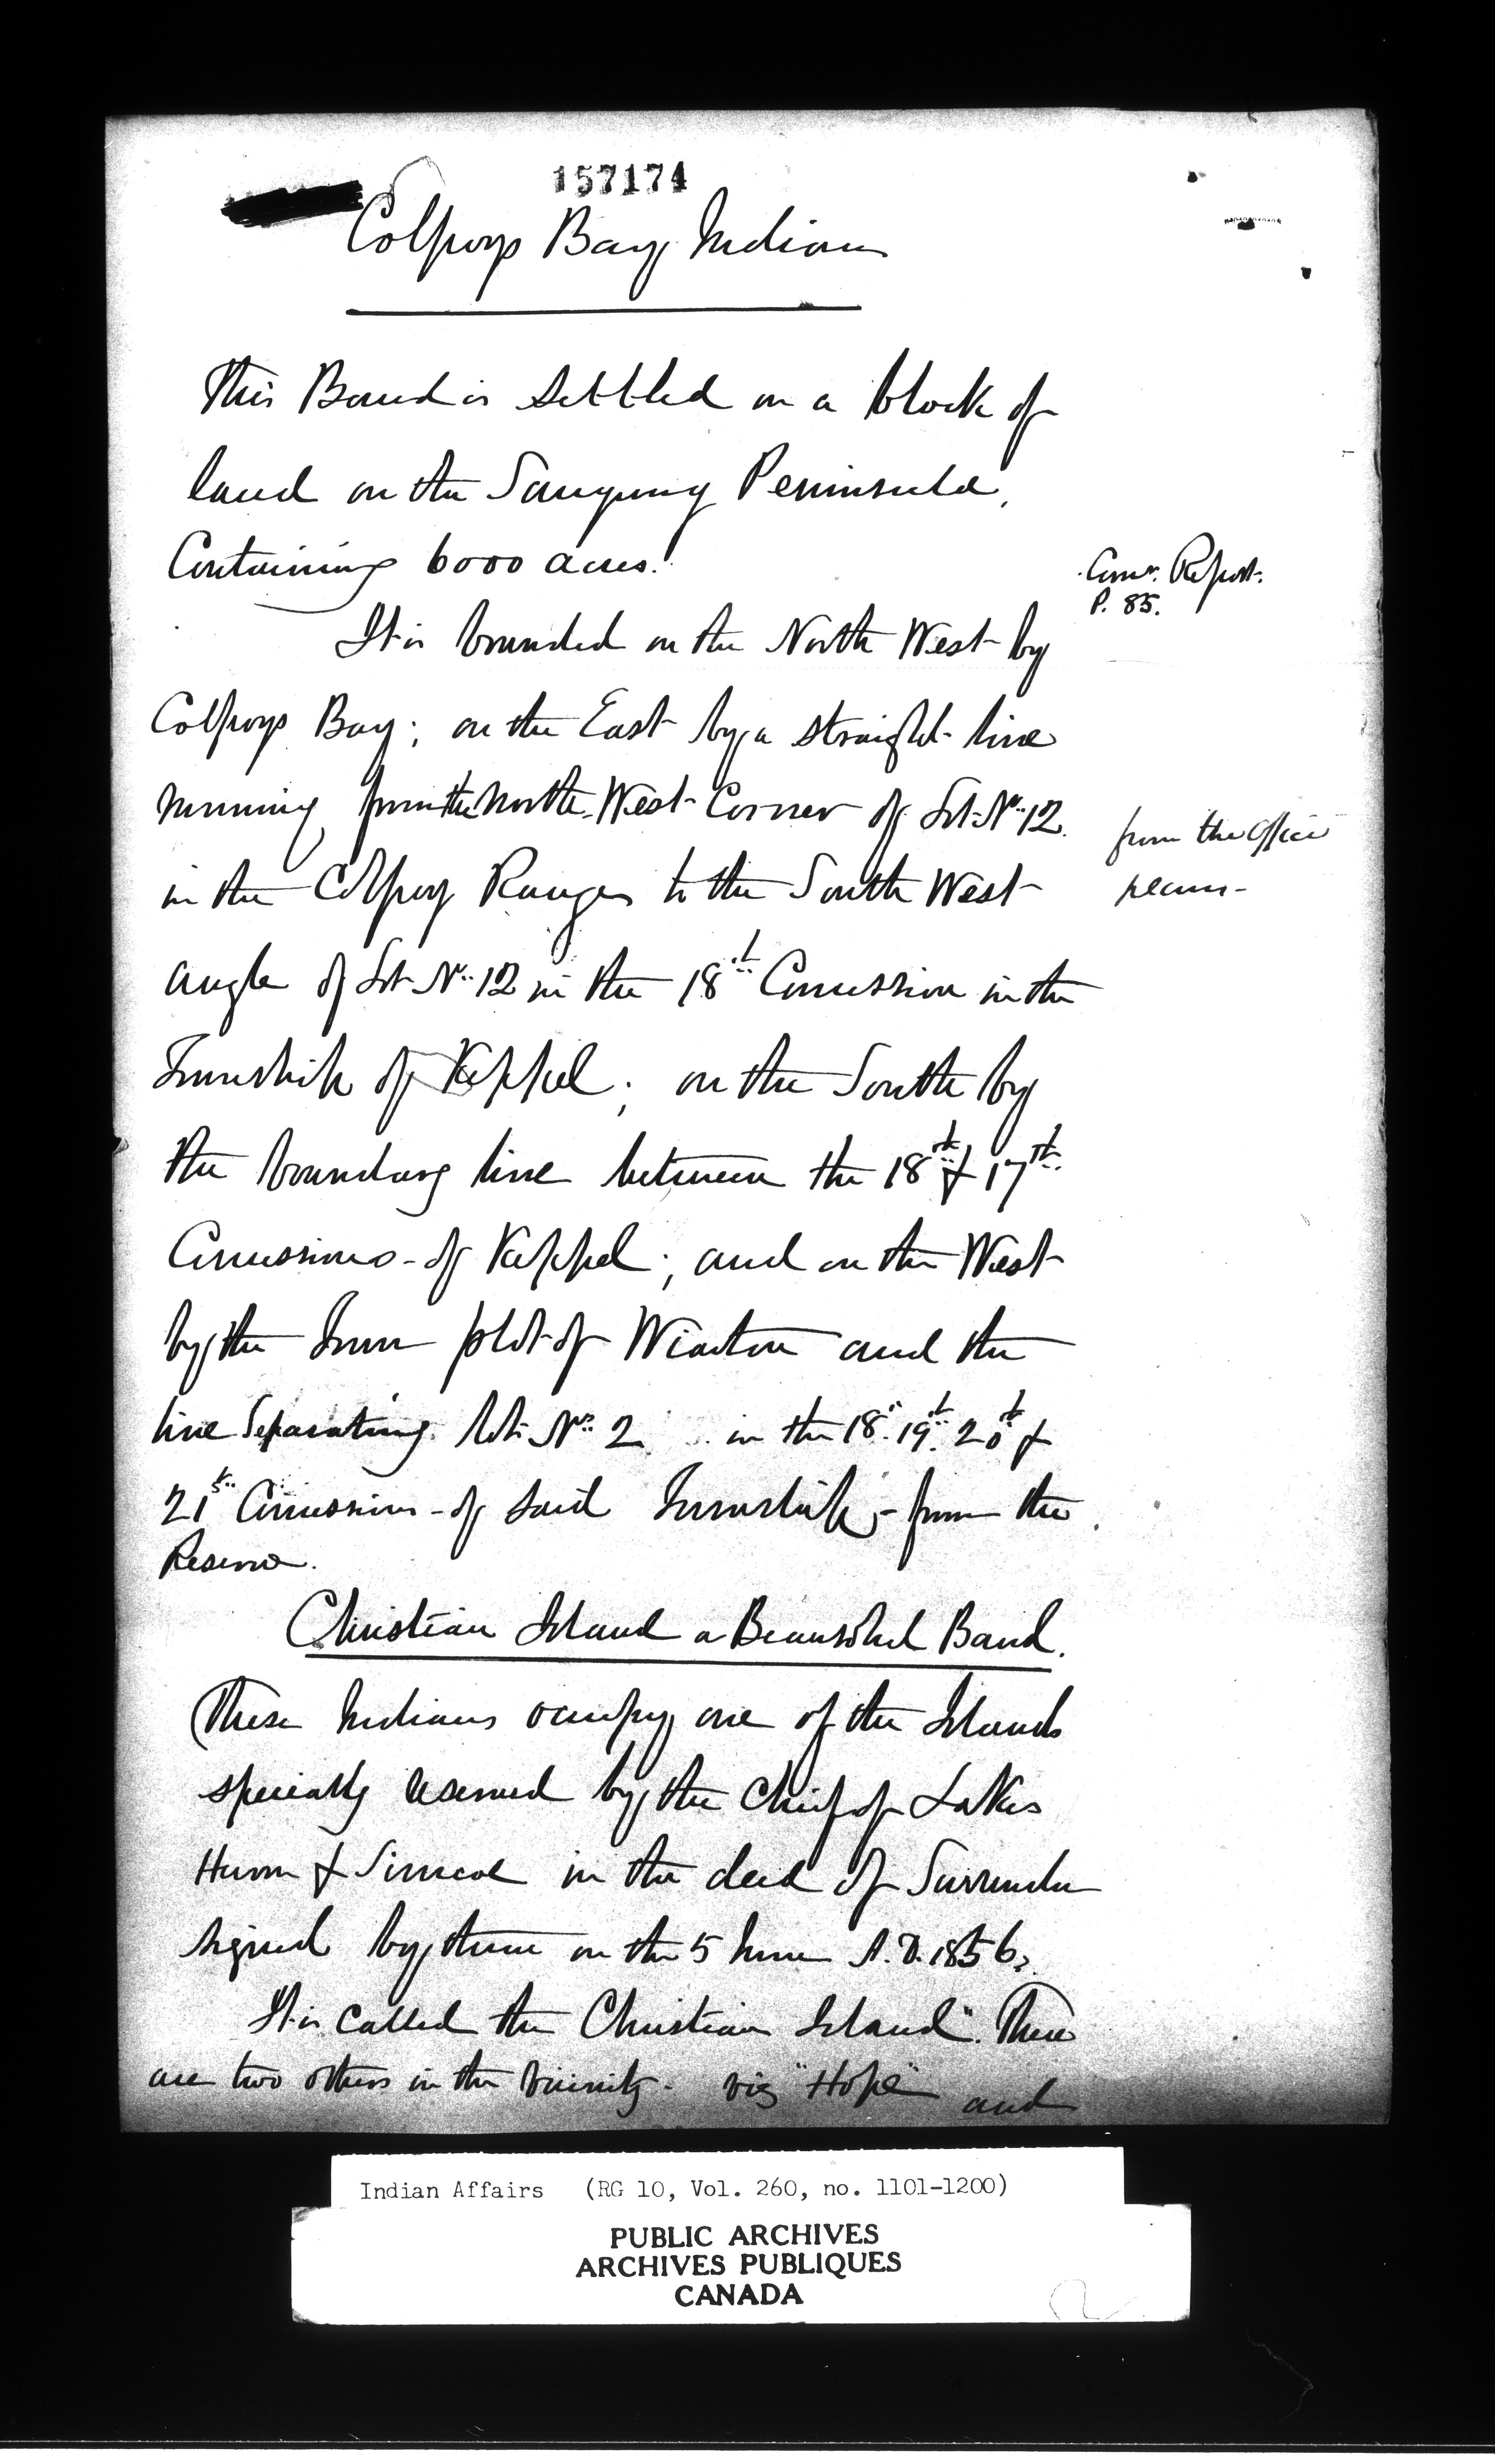 157174
Colpoys Bay Indians
This Band is settled on a block of
land on the Saugeeng Peninsula,
Containing 6000 acres.
Comrs. Report.
P. 85.
It is bounded on the North West by
Colpoys Bay; on the East by a straight line
running from the North West Corner of Lot No. 12
from the Office
in the Colpoy Ranges to the South West
angle of Lot No. 12 in the 18th Concession in the
Township of Keppel; on the South by
the boundary line between the 18th & 17th
Concessions of Keppel; and on the West
by the Town plot of Wiarton and the
line Separating lots No. 2 in the 18. 19th 20th &
21st Concessions of said Township - from the
Reserve.
Christian Island or Beausoleil Band.
These Indians occupy one of the Islands
specially reserved by the Chiefs of Lakes
Huron & Simcoe in the deed of Surrender
signed by them on the 5 June A.D. 1856.
It is called the Christian Island". There
are two others in the vicinity - viz "Hope" and
Indian Affairs (RG 10, Vol. 260, no. 1101-1200)
PUBLIC ARCHIVES
ARCHIVES PUBLIQUES
CANADA